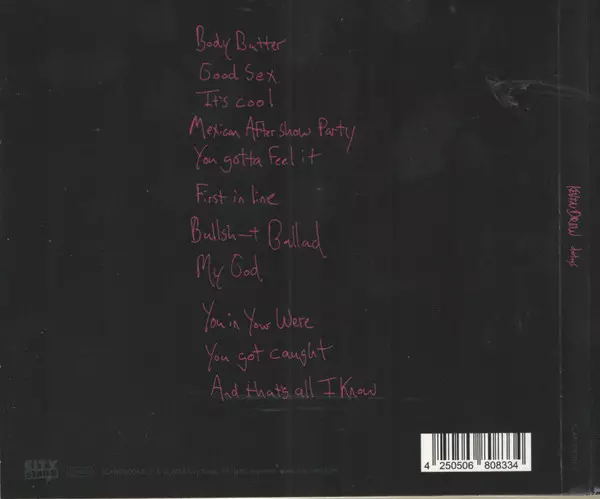 Body Butter
Good Sex
It's cool
Mexican After Show Party
You gotta Feel it
First in line
Bullsh--t Ballad
My God
You in Your Were
You got caught
And that's all I Know
4 250506 808334
CITY